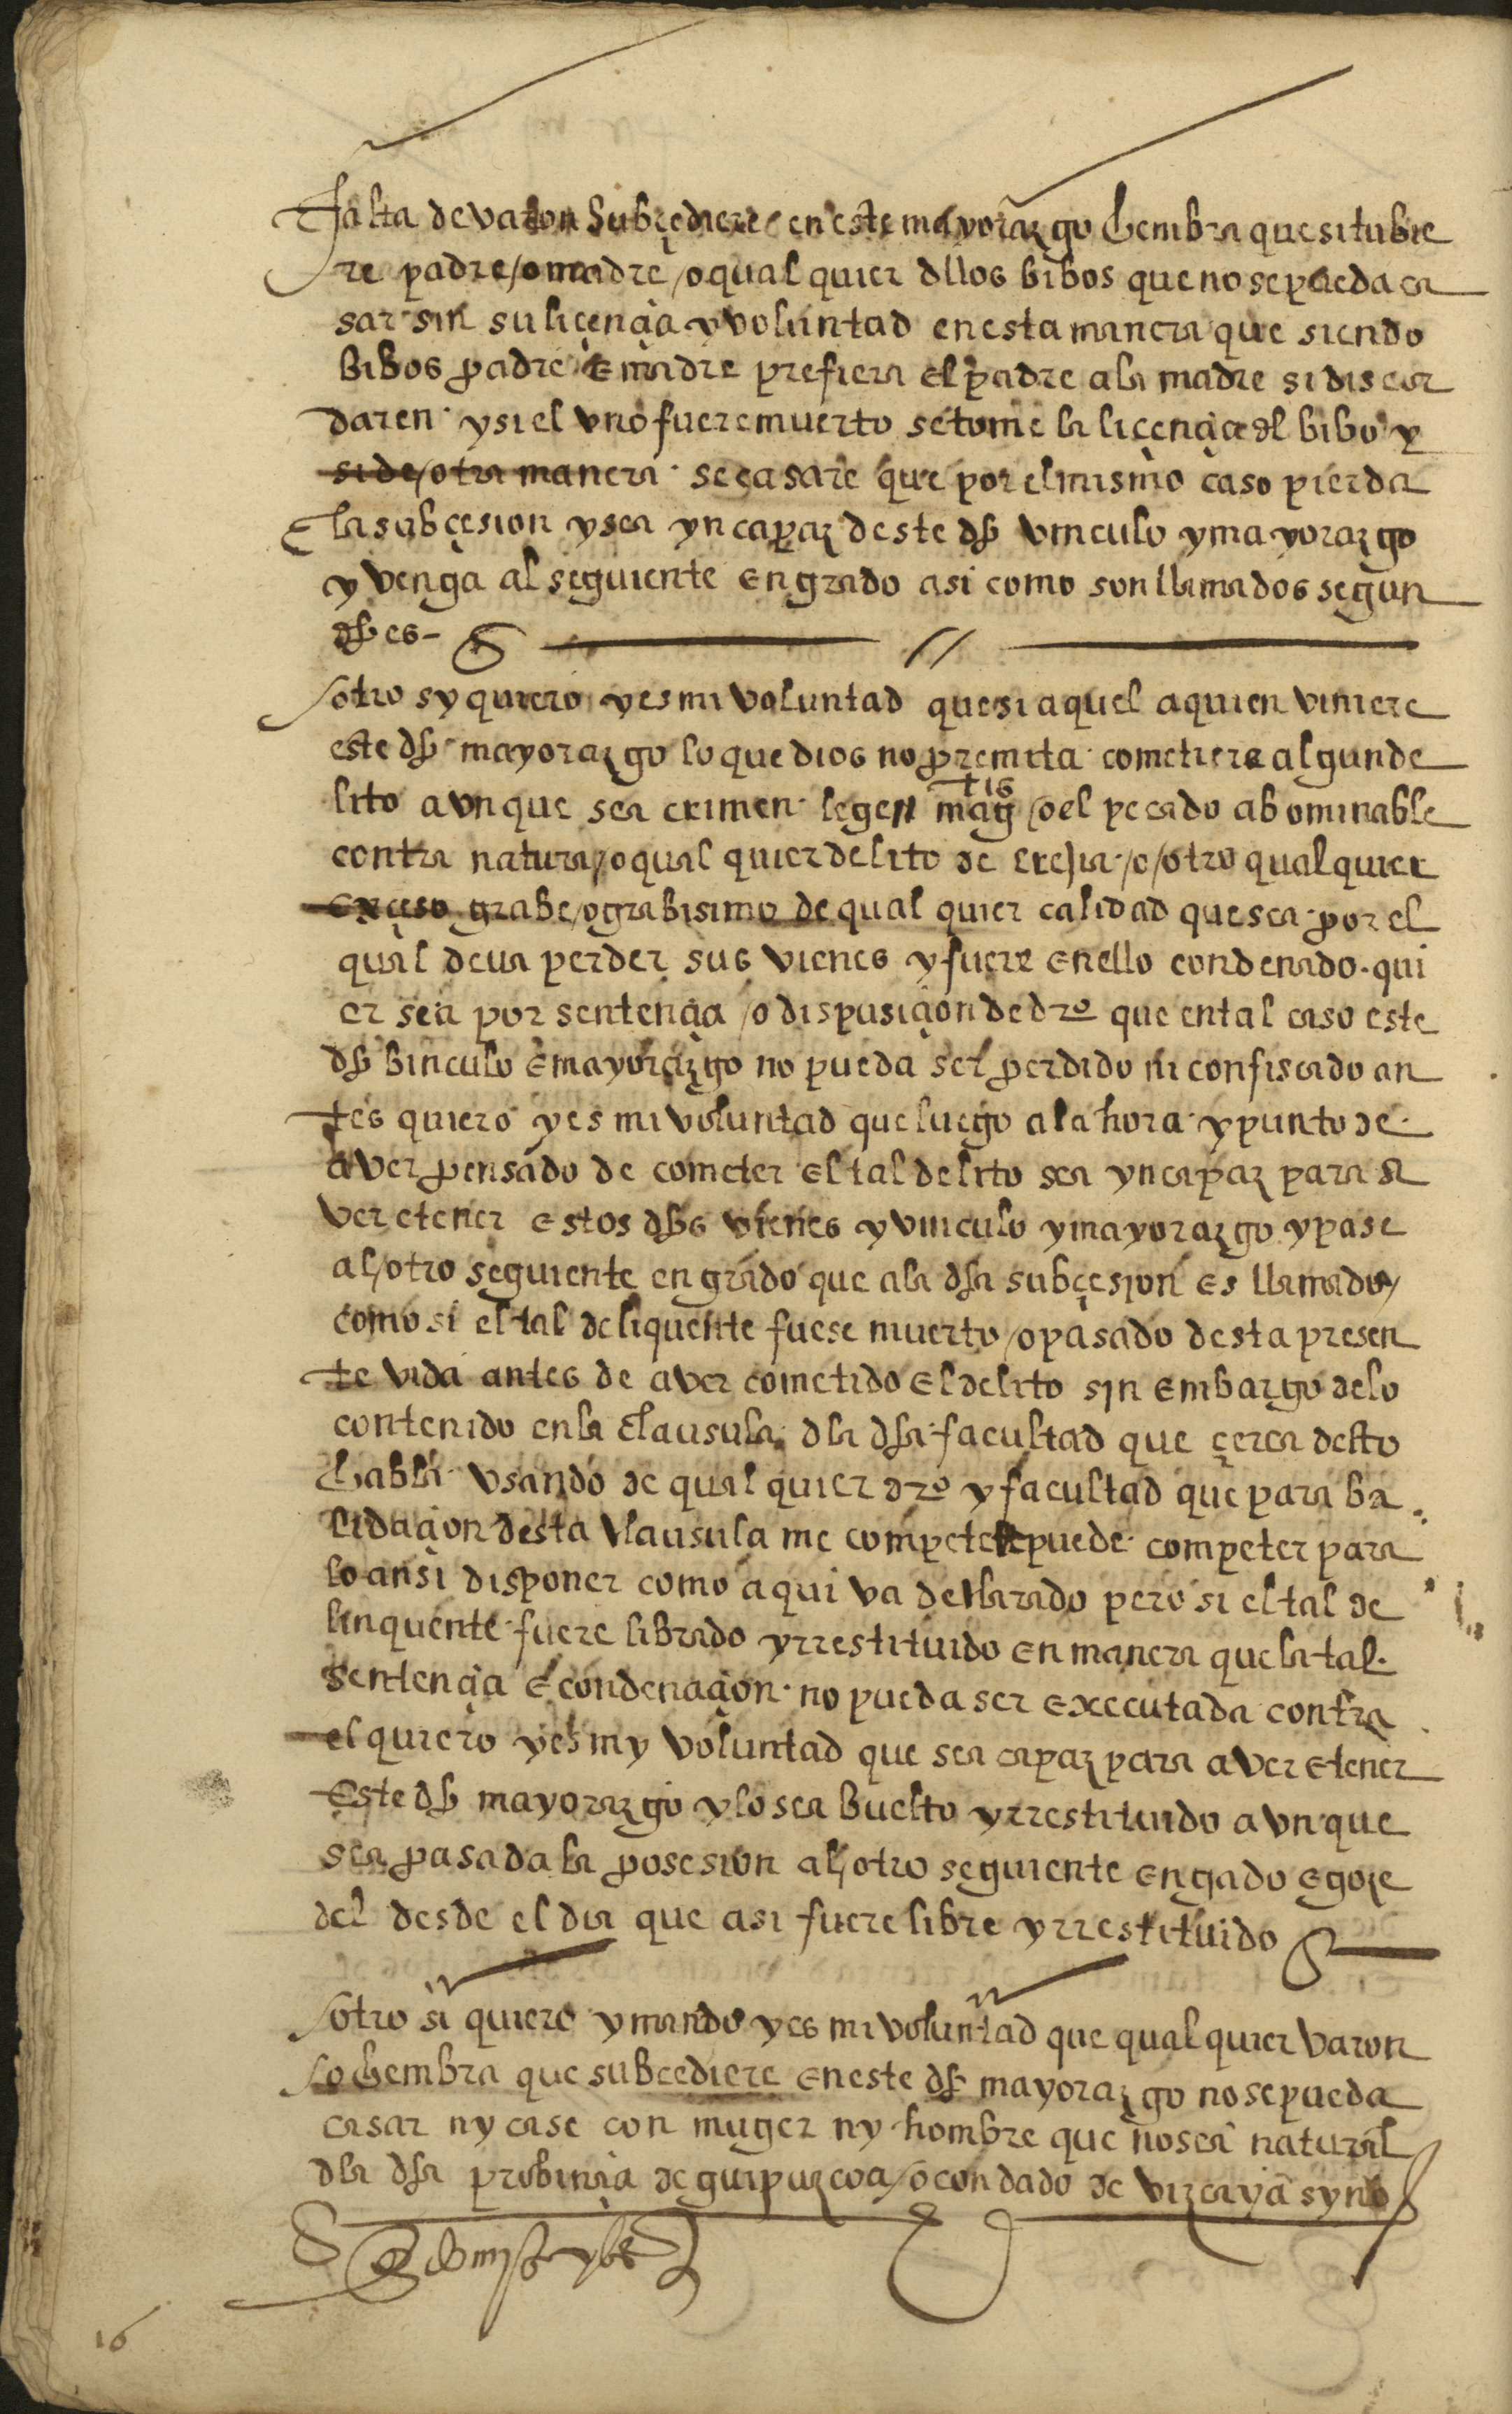 falta de varon subçediere en este mayorazgo hembra que si tubie
re padre / o madre / o qual quier dllos bibos que no se pueda ca
sar sin su liçençia y voluntad en esta manera que siendo
bibos padre E madre prefiera El padre a la madre si discor
daren y si el vno fuere muerto se tome la liçençia dl bibo y
si de / otra manera se casare que por el mismo caso pierda
la subçesion y sea yncapaz deste dho vinculo y mayorazgo
y venga al seguiente En grado asi como son llamados segun
dho es-
otro sy quiero y es mi voluntad que si aquel a quien viniere
este dho mayorazgo lo que dios no premita cometiere algun de
lito avnque sea crimen legen mag tis / o el pecado abominable
contra natura / o qual quier delito de erejia / o / otro qual quier
Exçeso grabe / o grabisimo de qual quier calidad que sea por el
qual deua perder sus vienes y fuere En ello condenado qui
er sea por sentençia / o dispusiçion de dro que en tal caso este
dho binculo E mayorazgo no pueda ser perdido ni confiscado an
tes quiero y es mi voluntad que luego a la hora y punto de
aver pensado de cometer El tal delito sea yncapaz para a
ver e tener Estos dhos vienes y vinculo y mayorazgo y pase
al / otro seguiente en grado que a la dha subçesion Es llamado /
como si el tal deliquente fuese muerto / o pasado desta presen
te vida antes de aver cometido El delito sin Embargo de lo
contenido en la clausula dla dha facultad que çerca desto
habla vsando de qual quier dro y facultad que para ba
lidaçion desta clausula me compete puede competer para
lo ansi disponer como aqui va declarado pero si el tal de
linquente fuere librado y rrestituido En manera que la tal
sentençia E condenaçion no pueda ser Executada contra
el quiero y es my voluntad que sea capaz para aver E tener
Este dho mayorazgo y lo sea buelto y rrestituido avnque
sea pasada la posesion al / otro seguiente En gado E goze
del desde el dia que asi fuere libre y rrestituido
otro si quiero y mando y es mi voluntad que qual quier varon
/ o hembra que subcediere En este dho mayorazgo no se pueda
casar ny case con muger ny hombre que no sea natural
dla dha probinçia de guipuzcoa / o condado de vizcaya syno
16